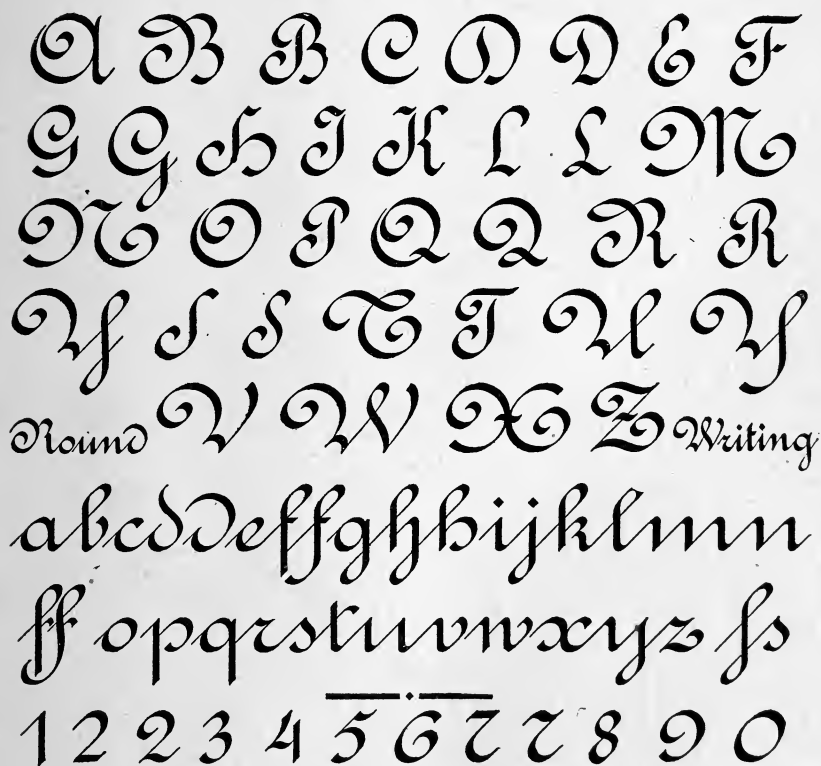 A B B C D D E F
G G H I K L L M
N O P Q Q R R
Y S S T T U Y
Round V W X Z Writing
abcddeffghhijklmn
ff opqrstuvwxyz ſs
1 2 2 3 4 5 6 7 7 8 9 0